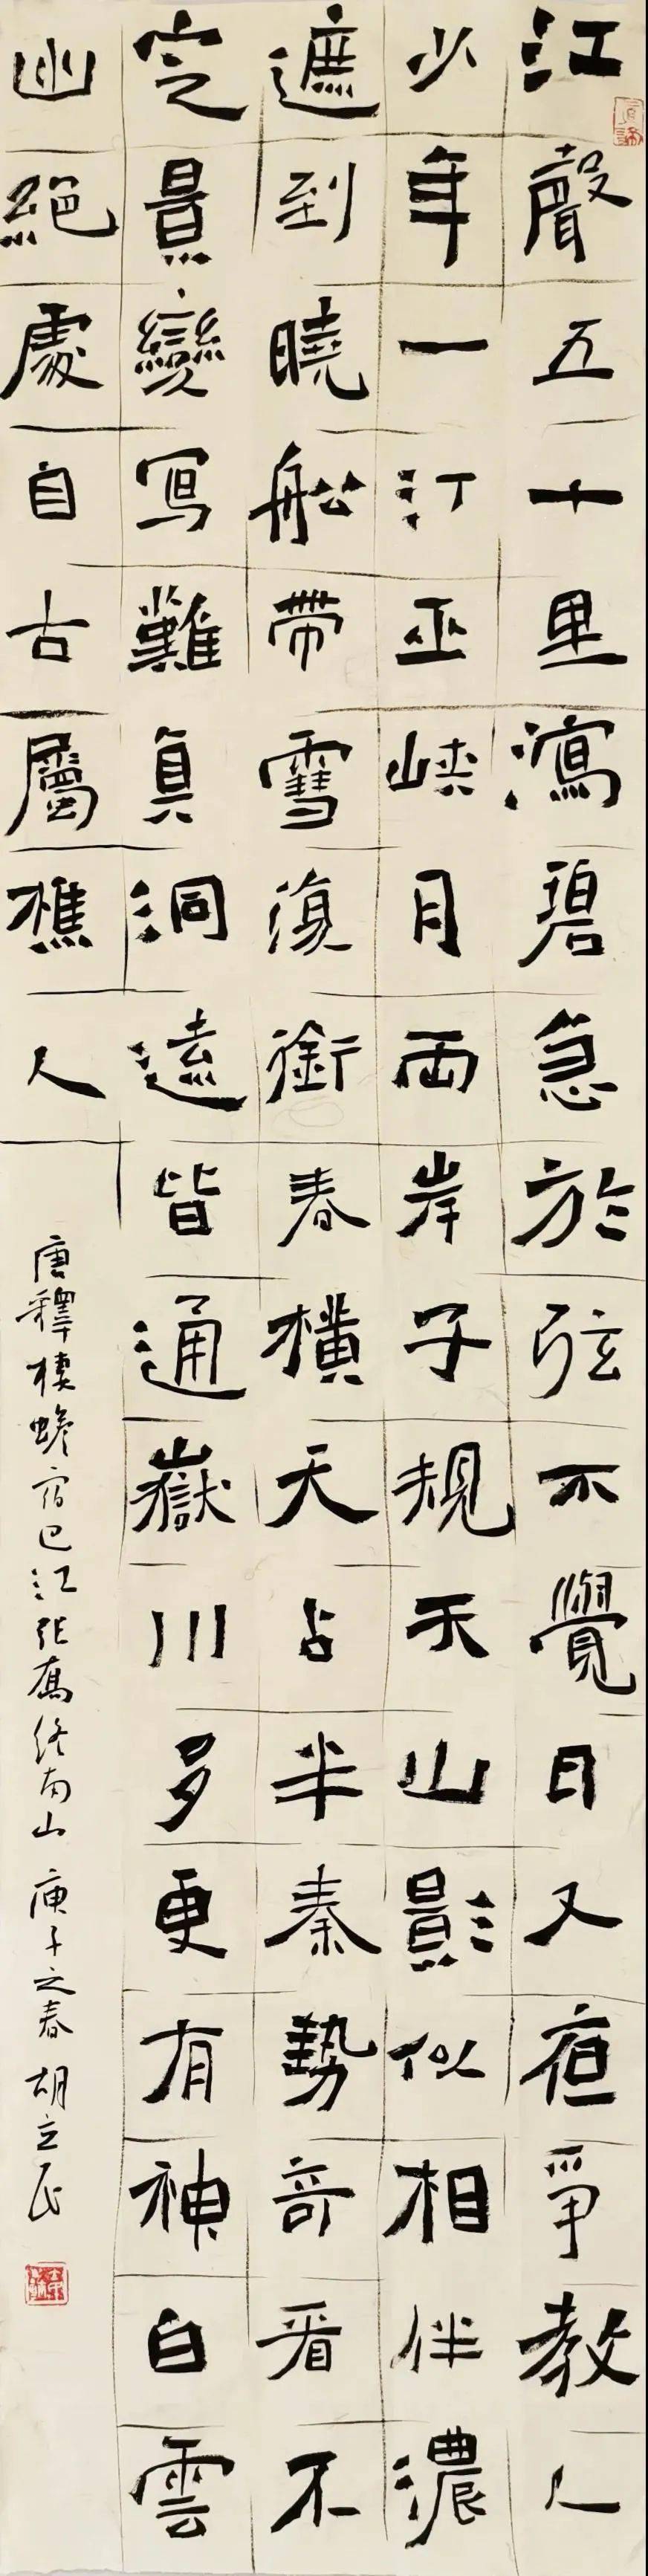 江聲五十里瀉碧急於弦不覺日又夜爭教人
少年一汀巫峽月兩岸子規天山影似相伴濃
遮到曉船帶雪復銜春橫天占半秦勢奇看不
定景變寫難真洞遠皆通嶽川多更有神白雲
幽絕處自古屬樵人
唐釋棲蟾宿巴江張喬終南山 庚子之春 胡立民